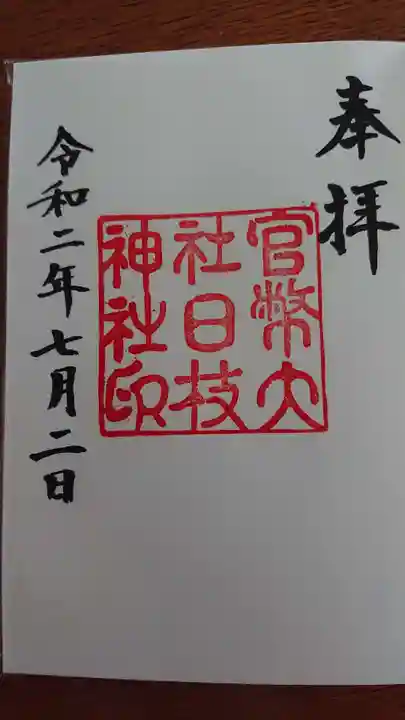 奉拝
官幣大
社日枝
神社印
令和二年七月二日